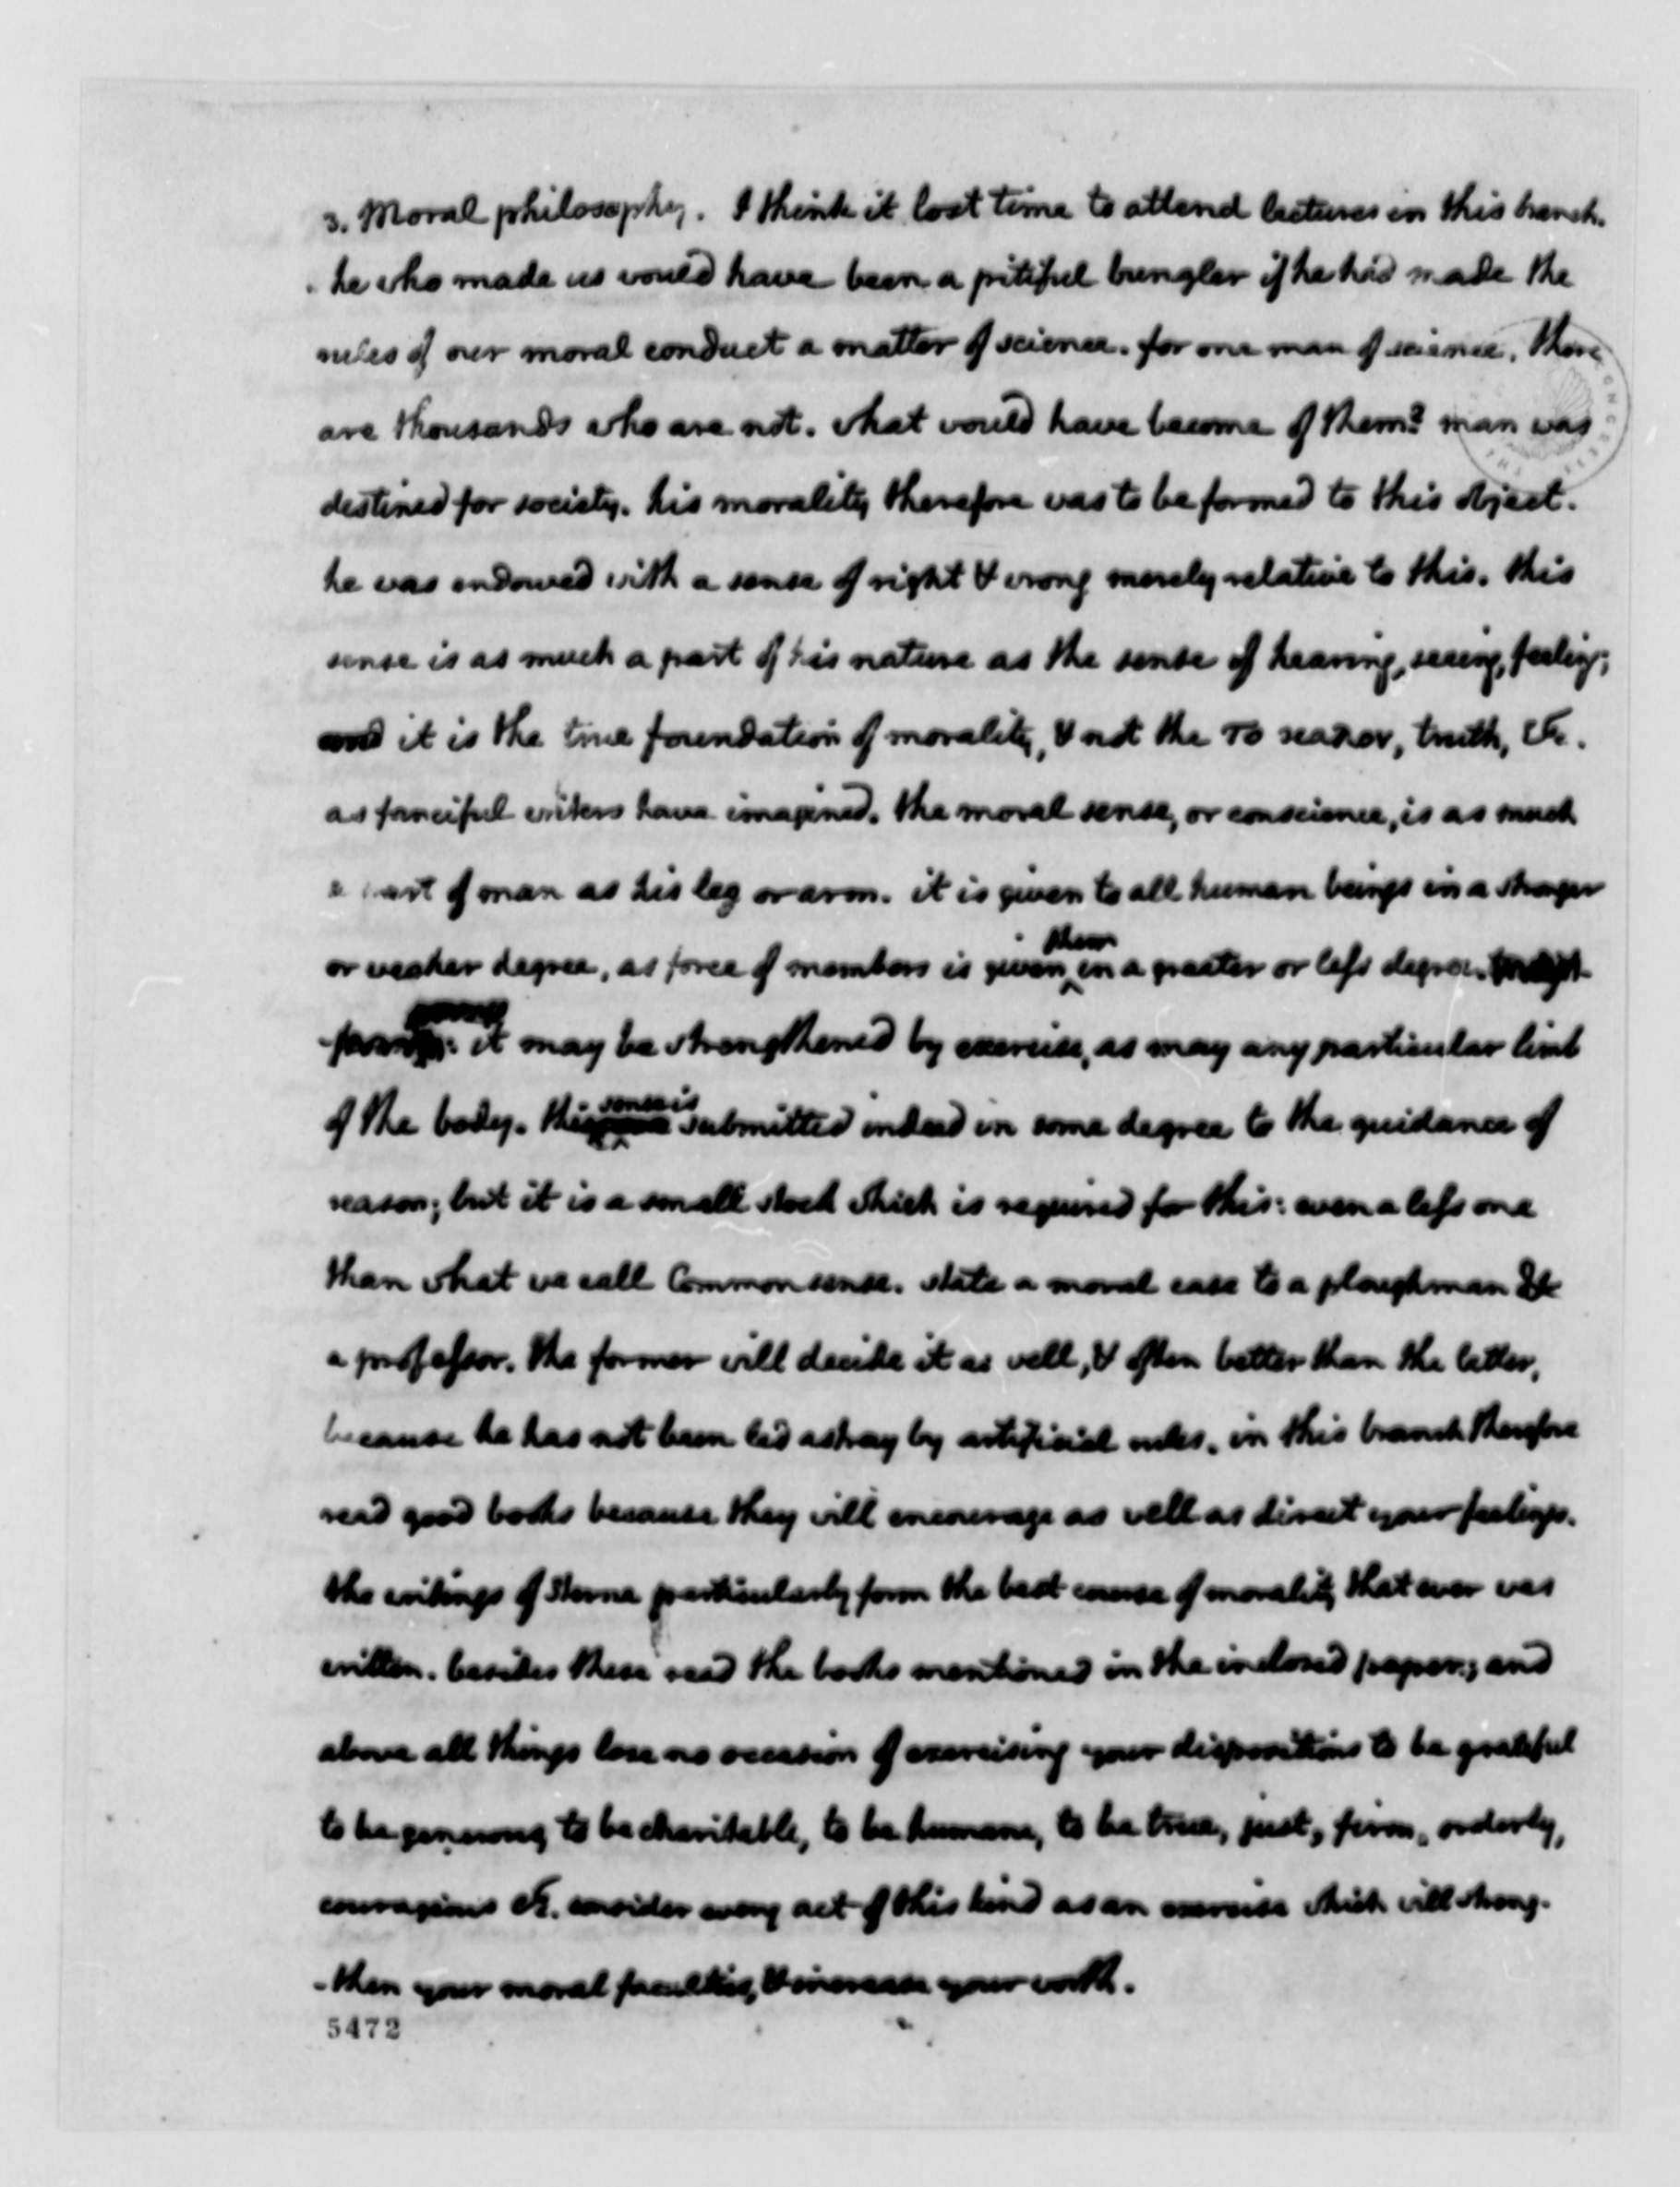 3. Moral philosophy. I think it lost time to attend lectures in this branch.
he who made us would have been a pitiful bungler if he had made the
rules of our moral conduct a matter of science. for one man of science, there
are thousands who are not. what would have become of them? man was
destined for society. his morality therefore was to be formed to this object.
he was endowed with a sense of right & wrong merely relative to this. this
sense is as much a part of his nature as the sense of hearing, seeing, feeling;
and it is the true foundation of morality, & not the το καλον, truth, &c.
as fanciful writers have imagined. the moral sense, or conscience, is as much
a part of man as his leg or arm. it is given to all human beings in a stronger
them
or weaker degree, as force of members is given in a greater or less degree.
it may be strengthened by exercise, as may any particular limb
sense is
of the body. this submitted indeed in some degree to the guidance of
reason; but it is a small stock which is required for this: even a less one
than what we call Common sense. state a moral case to a ploughman &
a professor. the former will decide it as well, & often better than the latter,
because he has not been led astray by artificial rules. in this branch therefore
read good books because they will encourage as well as direct your feelings.
the writings of Sterne particularly form the best course of morality that ever was
written. besides these read the books mentioned in the inclosed paper; and
above all things lose no occasion of exercising your dispositions to be grateful
to be generous, to be charitable, to be humane, to be true, just, firm, orderly,
couragious &c. consider every act of this kind as an exercise which will streng-
-then your moral faculties, & increase your worth.
5472